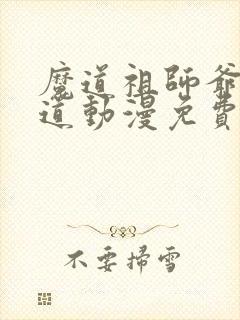 魔道祖師爺
道動漫免費
不要掃雪